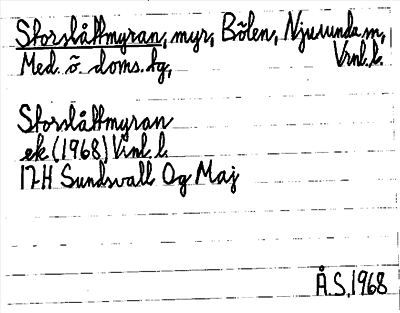 Storslåttmyran, myr, Bölen, Njurunda sn,
Med. ö. doms.tg, Vnl. l.
Storslåttmyran
ek (1968) Vnl. l.
17H Sundsvall Og Maj
Å.S. 1968